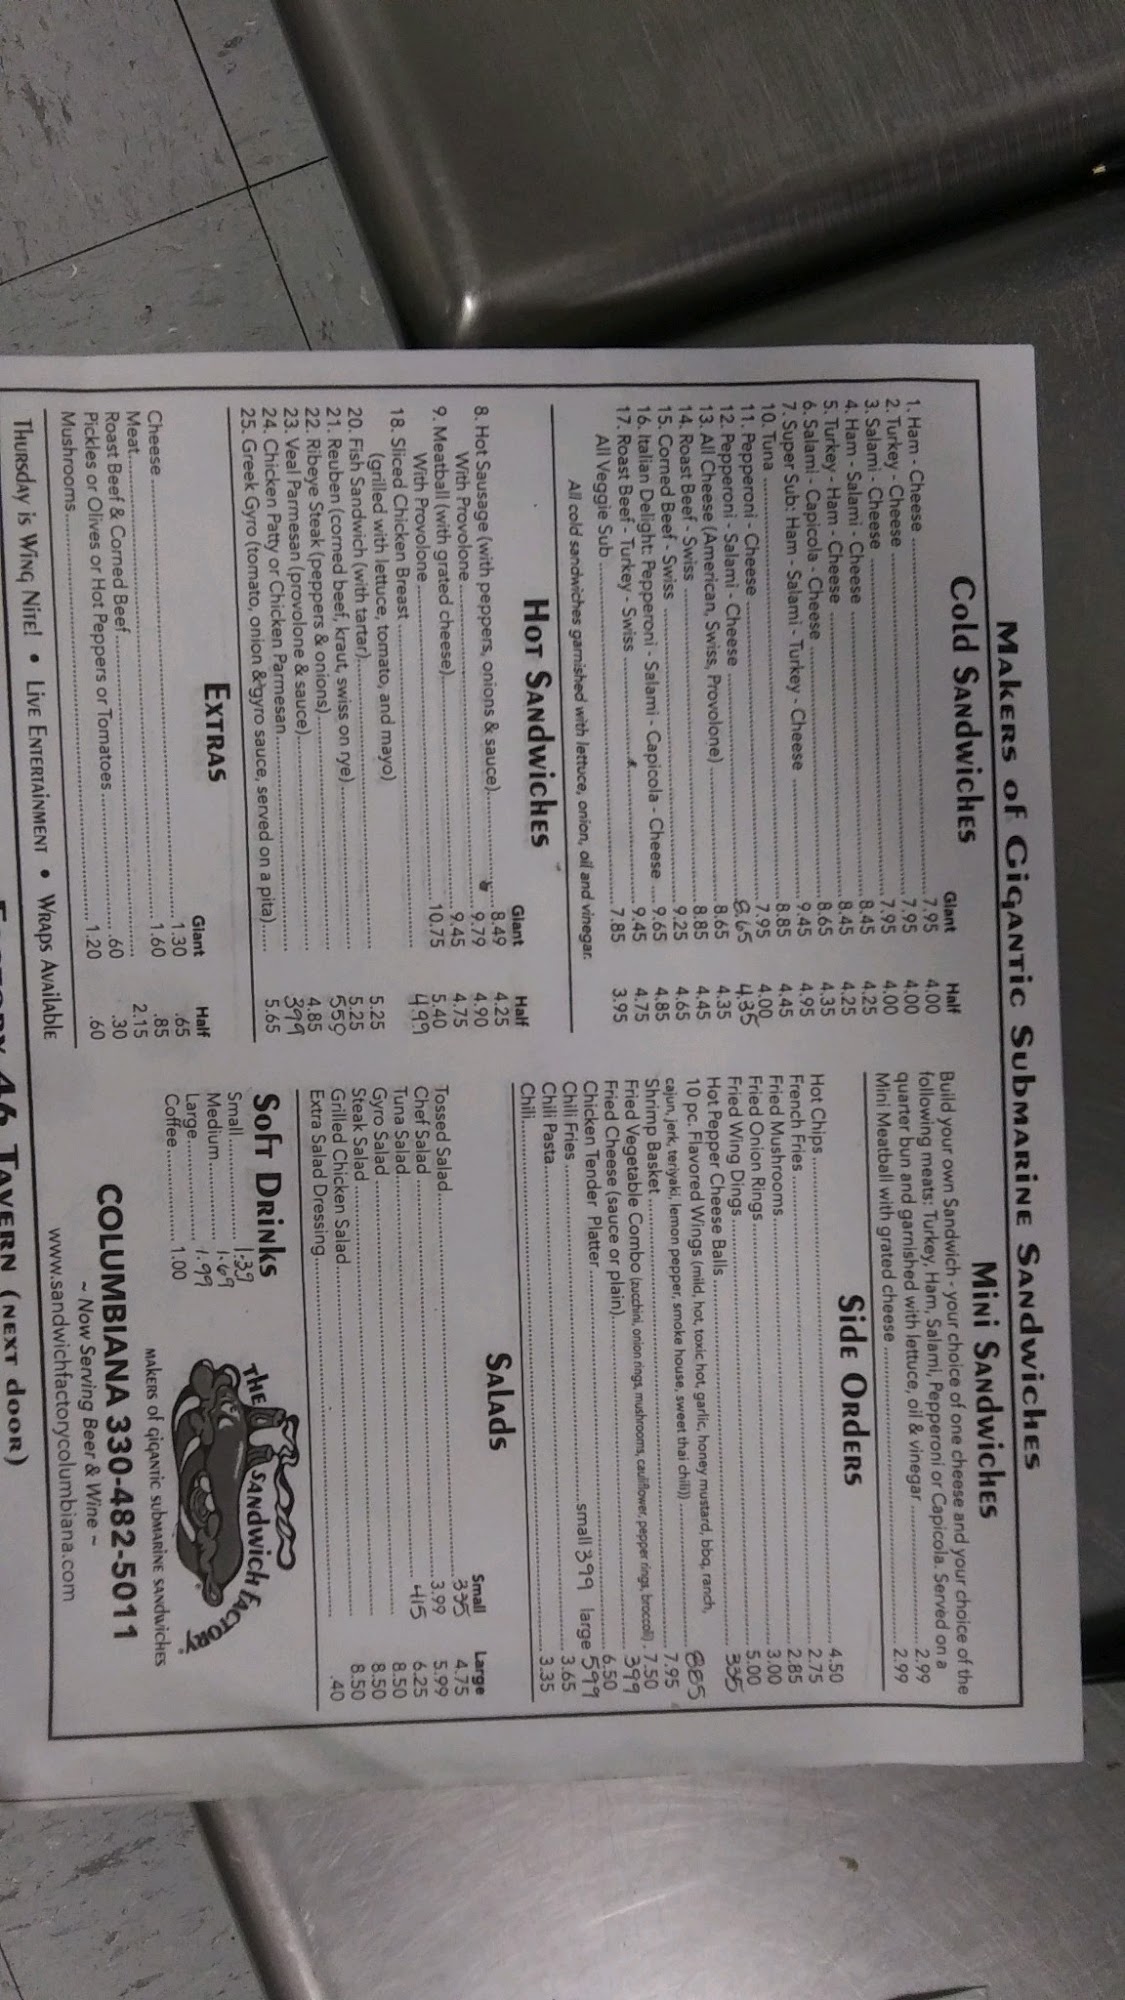 MAKERS OF GIGANTIC SUBMARINE SANDWICHES
COLD SANDWICHES
Giant Half
1. Ham - Cheese 7.95 4.00
2. Turkey - Cheese 7.95 4.00
3. Salami - Cheese 7.95 4.00
4. Ham - Salami - Cheese 8.45 4.25
5. Turkey - Ham - Cheese 8.45 4.25
6. Salami - Capicola - Cheese 8.65 4.35
7. Super Sub: Ham - Salami - Turkey - Cheese 9.45 4.95
10. Tuna 8.85 4.45
11. Pepperoni - Cheese 7.95 4.00
12. Pepperoni - Salami - Cheese 8.65 4.35
13. All Cheese (American, Swiss, Provolone) 8.65 4.35
14. Roast Beef - Swiss 8.85 4.45
15. Corned Beef - Swiss 9.25 4.65
16. Italian Delight: Pepperoni - Salami - Capicola - Cheese 9.65 4.85
17. Roast Beef - Turkey - Swiss 9.45 4.75
All Veggie Sub 7.85 3.95
All cold sandwiches garnished with lettuce, onion, oil and vinegar.
HOT SANDWICHES
Giant Half
8. Hot Sausage (with peppers, onions & sauce) 8.49 4.25
With Provolone 9.79 4.90
9. Meatball (with grated cheese) 9.45 4.75
With Provolone 10.75 5.40
18. Sliced Chicken Breast 499
(grilled with lettuce, tomato, and mayo)
20. Fish Sandwich (with tartar) 5.25
21. Reuben (corned beef, kraut, swiss on rye) 5.25
22. Ribeye Steak (peppers & onions) 550
23. Veal Parmesan (provolone & sauce) 4.85
24. Chicken Patty or Chicken Parmesan 399
25. Greek Gyro (tomato, onion & gyro sauce, served on a pita) 5.65
EXTRAS
Giant Half
Cheese 1.30 .65
Meat 1.60 .85
Roast Beef & Corned Beef 2.15
Pickles or Olives or Hot Peppers or Tomatoes .60 .30
Mushrooms 1.20 .60
MINI SANDWICHES
Build your own Sandwich - your choice of one cheese and your choice of the
following meats: Turkey, Ham, Salami, Pepperoni or Capicola. Served on a
quarter bun and garnished with lettuce, oil & vinegar 2.99
Mini Meatball with grated cheese 2.99
SIDE ORDERS
Hot Chips 4.50
French Fries 2.75
Fried Mushrooms 2.85
Fried Onion Rings 3.00
Fried Wing Dings 5.00
Hot Pepper Cheese Balls 335
10 pc. Flavored Wings (mild, hot, toxic hot, garlic, honey mustard, bbq, ranch,
cajun, jerk, teriyaki, lemon pepper, smoke house, sweet thai chili)) 885
Shrimp Basket 7.95
Fried Vegetable Combo (zucchini, onion rings, mushrooms, cauliflower, pepper rings, broccoli) 7.50
Fried Cheese (sauce or plain) 399
Chicken Tender Platter 6.50
Chili Fries small 399 large 599
Chili Pasta 3.65
Chili 3.35
SALADS
Small Large
Tossed Salad 335 4.75
Chef Salad 3.99 5.99
Tuna Salad 415 6.25
Gyro Salad 8.50
Steak Salad 8.50
Grilled Chicken Salad 8.50
Extra Salad Dressing .40
SOFT DRINKS
Small 1.39
Medium 1.69
Large 1.99
Coffee 1.00
THE SANDWICH FACTORY
MAKERS OF GIGANTIC SUBMARINE SANDWICHES
COLUMBIANA 330-482-5011
~ Now Serving Beer & Wine ~
www.sandwichfactorycolumbiana.com
THURSDAY IS WING NITE! • LIVE ENTERTAINMENT • WRAPS AVAILABLE
46 TAVERN (NEXT DOOR)